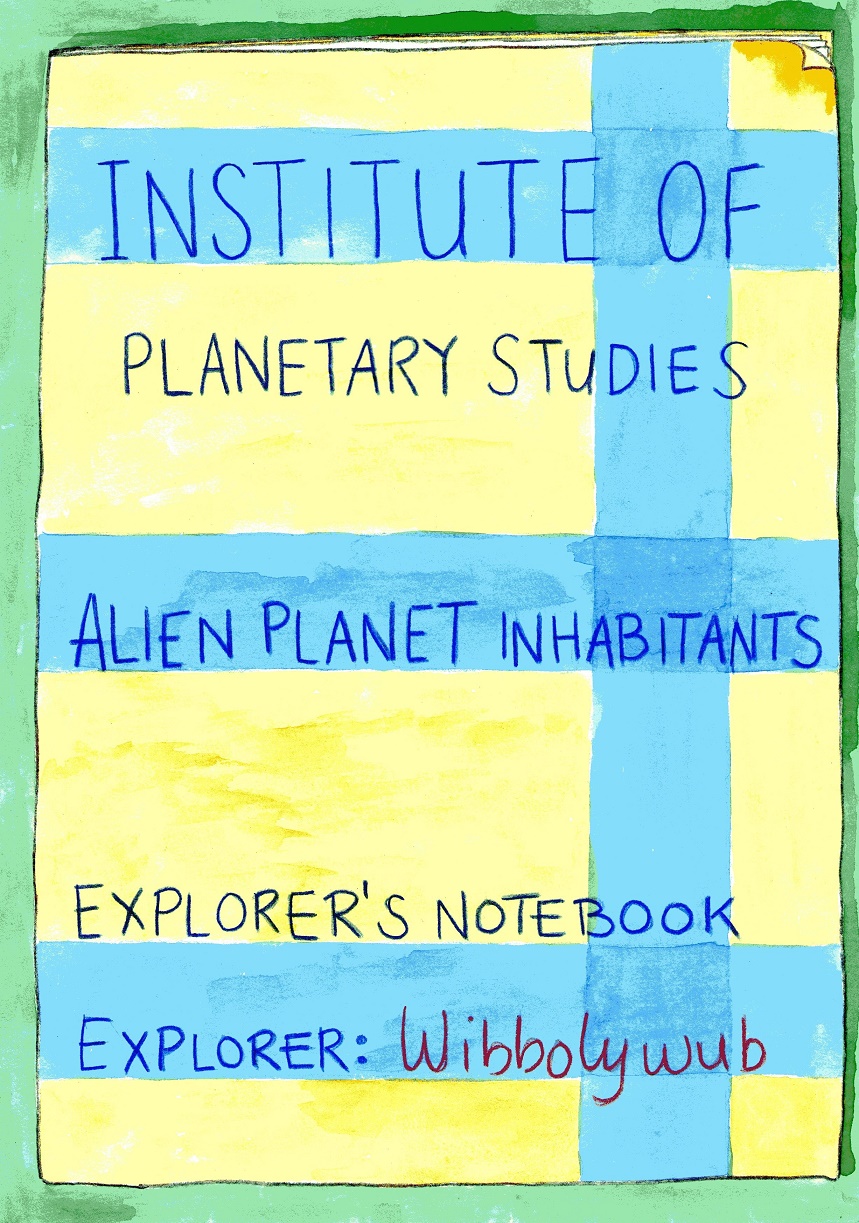 INSTITUTE OF
PLANETARY STUDIES
ALIEN PLANET INHABITANTS
EXPLORER'S NOTEBOOK
EXPLORER: Wibbolywub